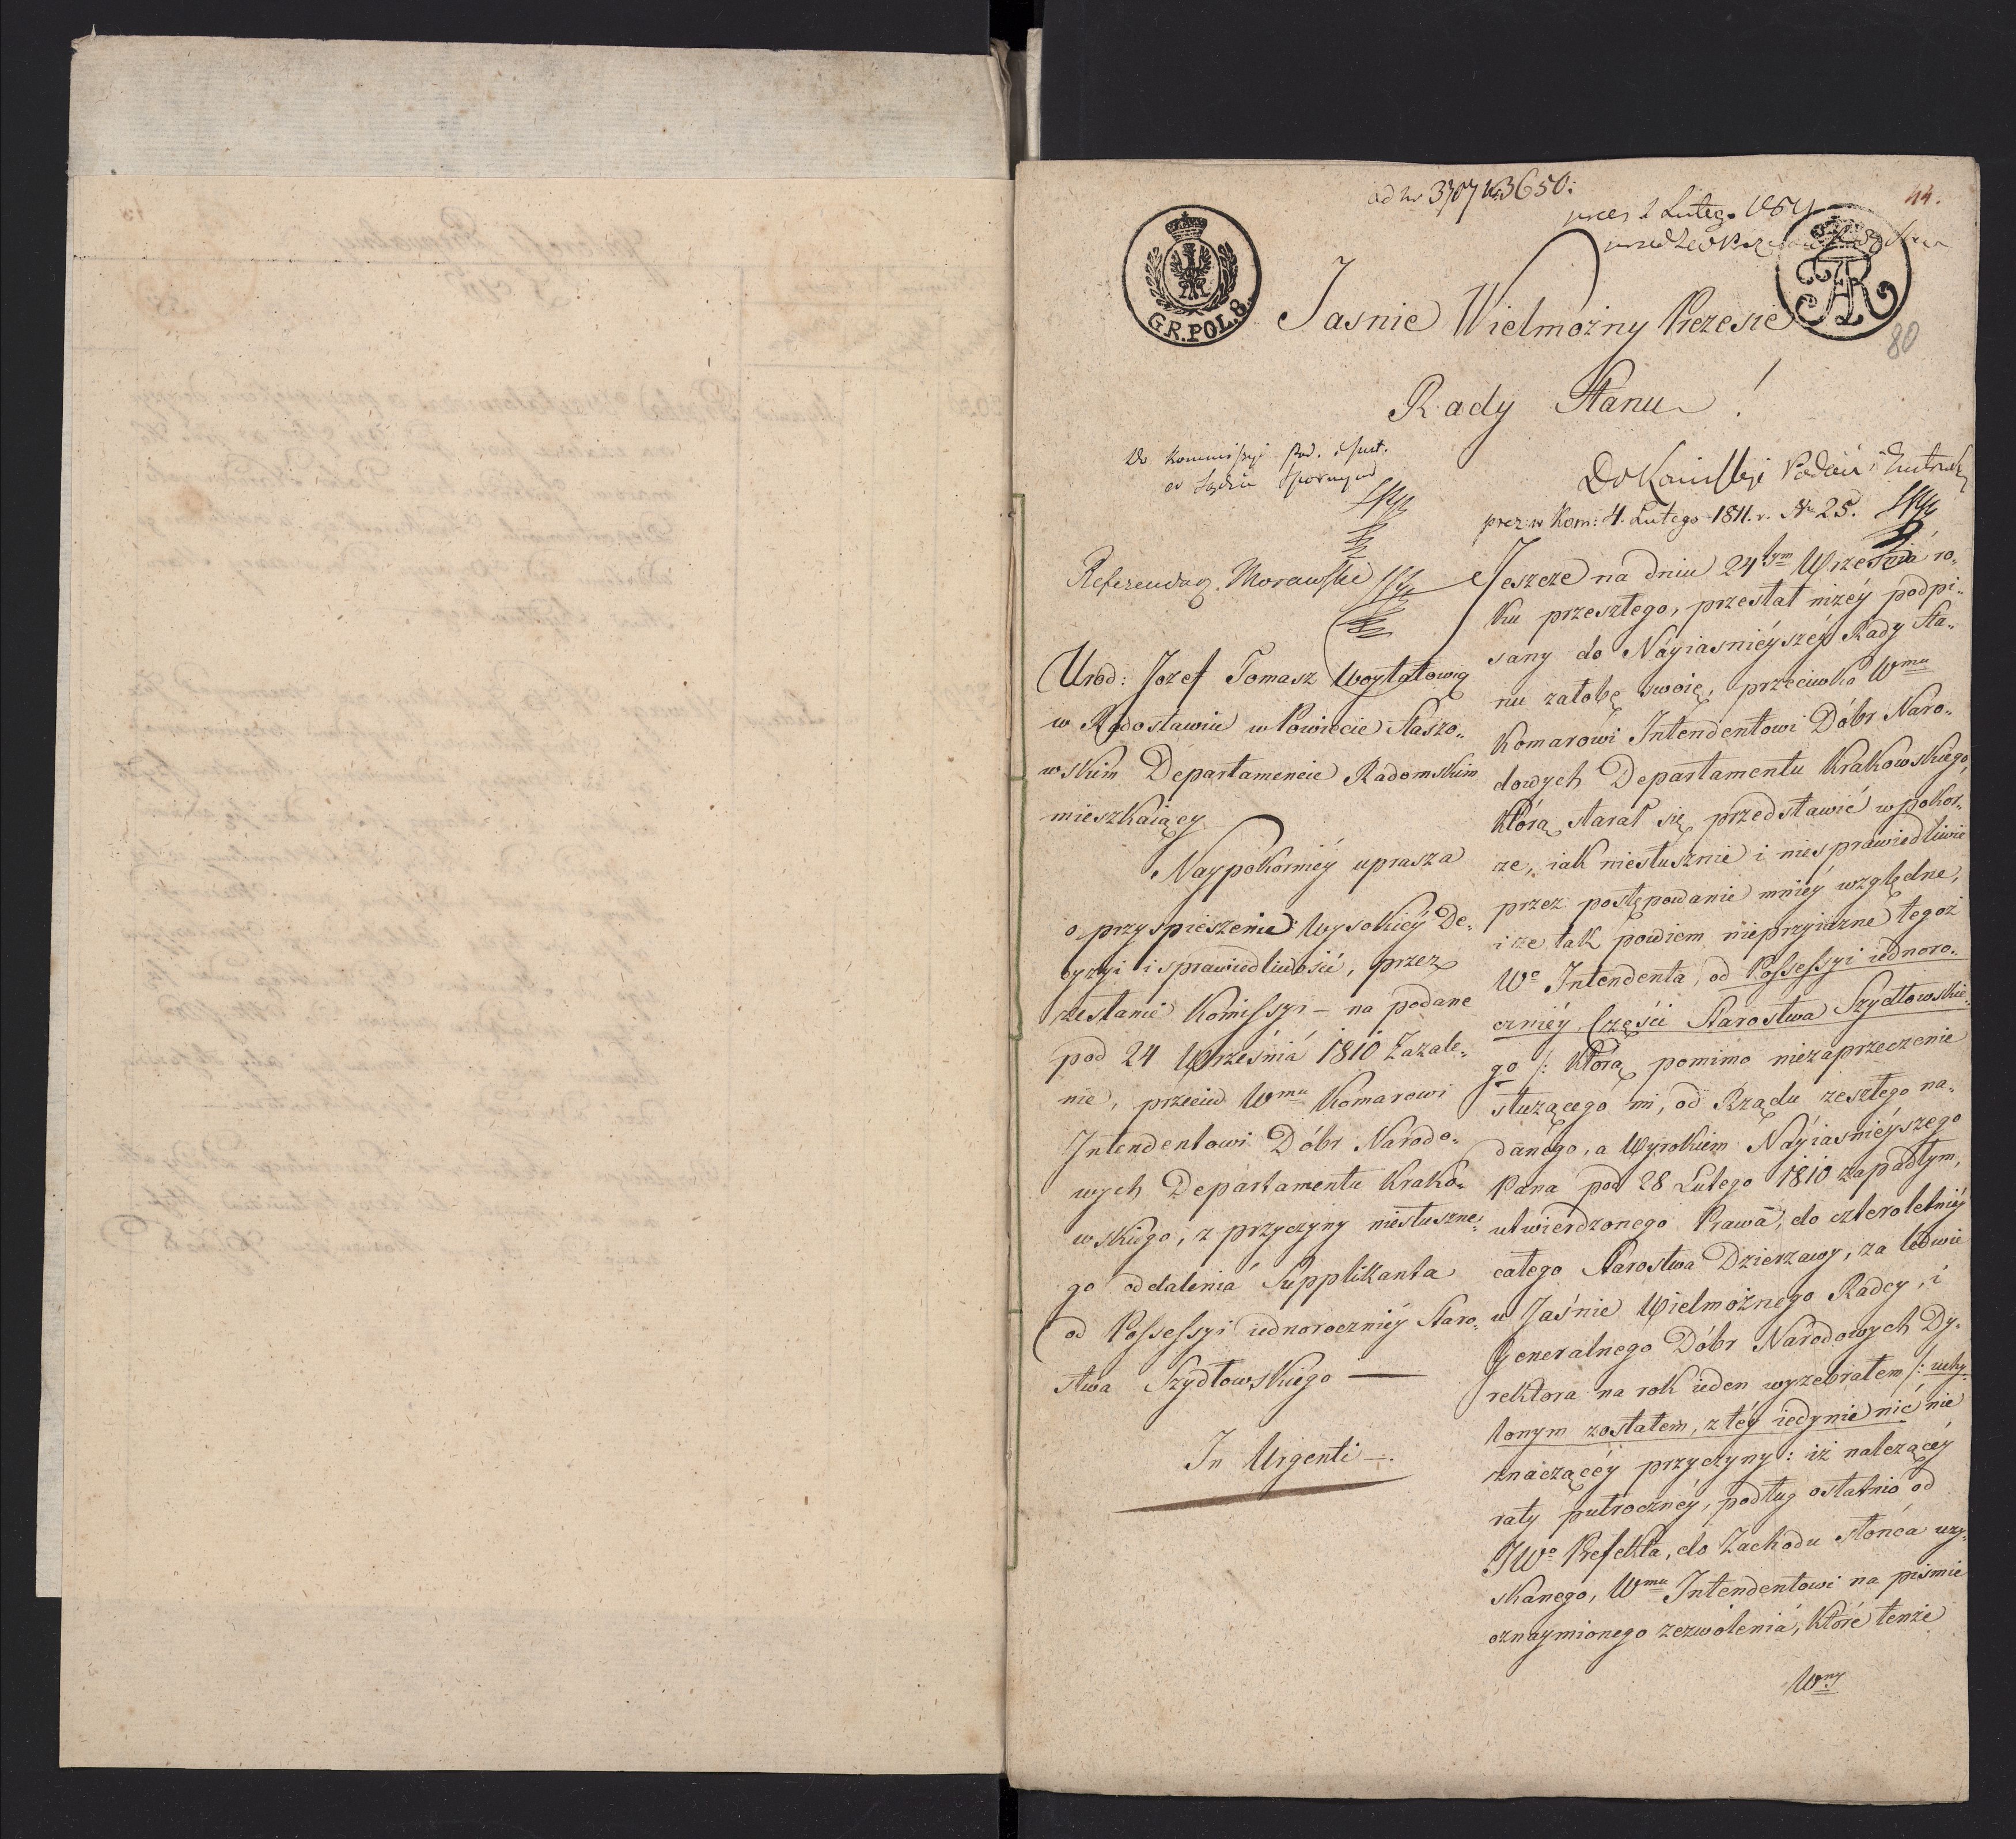 ad Nr 3707 3650:
44.
2 Lutego
G.R.POL.8.
FAR
80
Jasnie Wielmożny Prezesie
Rady Stanu !
Do Kommissyi Pod. i Inst.
Do Komissyi Podań i
prez: w Kom: 4. Lutego 1811. r. N 25.
Referendarz Morawski
Urod: Jozef Tomasz
w Radosławiu w Powiecie Staszo„
wskim Departamencie Radomskim
mieszkaiący
Naypokorniéy uprasza
o przyspieszenie Wysokiéy De„
cyzyi i sprawiedliwość, przez
zesłanie Komissyi – na podane
pod 24 Września 1810 Zażale„
nie, przeciw Wmu Komarowi
Intendentowi Dóbr Narodo„
wych Departamentu Krako„
wskiego, z przyczyny niesłuszne„
go oddalenia Supplikanta
od Possessyi iednoroczniéy Staro„
stwa Szydłowskiego —
In Urgenti —.
Jeszcze na dniu 24tym Września ro„
ku przeszłego, przesłał niżéy podpi„
sany do Nayiaśniéyszéy Rady Sta„
nu żałobę swoię, przeciwko Wmu
Komarowi Intendentowi Dóbr Naro„
dowych Departamentu Krakowskiego,
którą starał się przedstawić w pokor„
ze, iak niesłusznie i niesprawiedliwie
przez postępowanie mniéy względne,
i że tak powiem nieprzyiazne tegoż
Wo Intendenta, od Possessyi iednoro„
czniéy Części Starostwa Szydłowskie„
go /: którą pomimo niezaprzeczenie
służącego mi, od Rządu zeszłego na„
danego, a Wyrokiem Nayiaśniéyszego
Pana pod 28 Lutego 1810 zapadłym,
utwierdzonego Prawa, do czteroletniéy
całego Starostwa Dzierżawy, za ledwie
u Jaśnie Wielmożnego Radcy, i
Generalnego Dóbr Narodowych Dy„
rektora na rok ieden wyżebrałem /: uchy„
lonym zostałem, z téy iedynie nic nie
znaczącéy przyczyny: iż należącéy
raty pułrocznéy, podług ostatnio od
JWo Prefekta, do Zachodu słońca uzy„
skanego, Wmu Intendentowi na piśmie
oznaymionego zezwolenia, które tenże
Wny